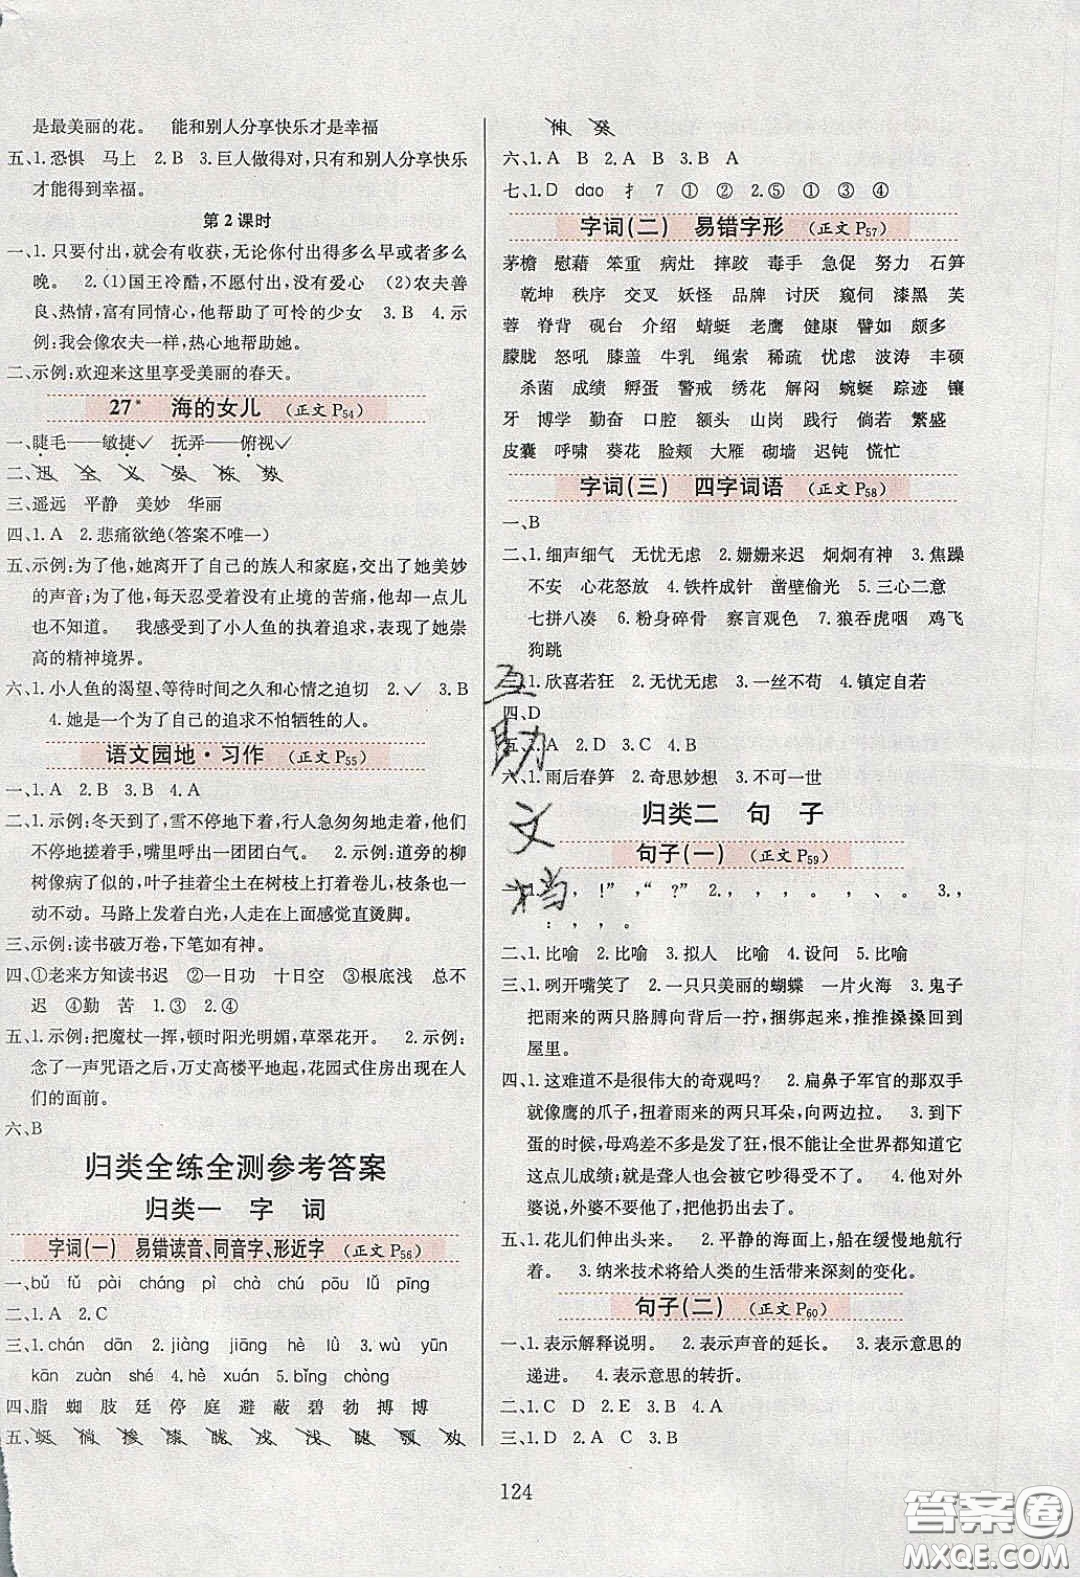 是最美丽的花。 能和别人分享快乐才是幸福
五、1.恐惧 马上 2.B 3.巨人做得对,只有和别人分享快乐
才能得到幸福。
第2课时
一、1.只要付出,就会有收获,无论你付出得多早或者多么
晚。 2.(1)国王冷酷,没有爱心 (2)农夫善
良、热情,富有同情心,他帮助了可怜的少女 3.B 4.示
例:我会像农夫一样,热心地帮助她。
二、示例:欢迎来这里享受美丽的春天。
27* 海的女儿 (正文P54)
一、睫毛——敏捷✓ 抚弄——俯视✓
二、迅 全 义 晏 栋 势
三、遥远 平静 美妙 华丽
四、1.A 2.悲痛欲绝(答案不唯一)
五、示例:为了他,她离开了自己的族人和家庭,交出了她美妙
的声音;为了他,每天忍受着没有止境的苦痛,他却一点儿
也不知道。 我感受到了小人鱼的执着追求,表现了她崇
高的精神境界。
六、1.小人鱼的渴望、等待时间之久和心情之迫切 2.✓ 3.B
4.她是一个为了自己的追求不怕牺牲的人。
语文园地·习作 (正文P55)
一、1.A 2.B 3.B 4.A
二、1.示例:冬天到了,雪不停地下着,行人急匆匆地走着,他们
不停地搓着手,嘴里呼出一团团白气。 2.示例:道旁的柳
树像病了似的,叶子挂着尘土在树枝上打着卷儿,枝条也一
动不动。马路上发着白光,人踩在上面感觉直烫脚。
三、示例:读书破万卷,下笔如有神。
四、①老来方知读书迟 ②一日功 十日空 ③根底浅 总不
迟 ④勤 苦 1.③ 2.④
五、1.示例:把魔杖一挥,顿时阳光明媚,草翠花开。 2.示例:
念了一声咒语之后,万丈高楼平地起,花园式住房出现在人
们的面前。
六、B
归类全练全测参考答案
归类一 字 词
字词(一) 易错读音、同音字、形近字 (正文P56)
一、bǔ fǔ pài cháng pì chà chú pōu lǚ pīng
二、1.A 2.C
三、1.chán dān 2.jiàng jiāng hè lǜ 3.wò yūn
kān zuàn shé 4.hè xuán 5.bǐng chòng
四、脂 蜘 肢 廷 停 庭 避 蔽 碧 勃 搏 博
五、蜓 徜 掺 膝 眬 戎 浅 睫 颚 欢
伸 癸
六、1.A B 2.A B 3.B A
七、1.D dao 扌 7 ① ② 2.⑤ ① ③ ④
字词(二) 易错字形 (正文P57)
茅檐 慰藉 笨重 病灶 摔跤 毒手 急促 努力 石笋
乾坤 秩序 交叉 妖怪 品牌 讨厌 窥伺 漆黑 芙
蓉 脊背 砚台 介绍 蜻蜓 老鹰 健康 譬如 颇多
朦胧 怒吼 膝盖 牛乳 绳索 稀疏 忧虑 波涛 丰硕
杀菌 成绩 孵蛋 警戒 绣花 解闷 蜿蜒 踪迹 镶
牙 博学 勤奋 口腔 额头 山岗 践行 倘若 繁盛
皮囊 呼啸 葵花 脸颊 大雁 砌墙 迟钝 慌忙
字词(三) 四字词语 (正文P58)
一、B
二、1.细声细气 无忧无虑 2.姗姗来迟 炯炯有神 3.焦躁
不安 心花怒放 4.铁杵成针 凿壁偷光 5.三心二意
七拼八凑 6.粉身碎骨 察言观色 7.狼吞虎咽 鸡飞
狗跳
1.欣喜若狂 2.无忧无虑 3.一丝不苟 4.镇定自若
四、D
五、1.A 2.D 3.C 4.B
六、1.雨后春笋 2.奇思妙想 3.不可一世
归类二 句 子
句子(一) (正文P59)
, !”,“ ?” 2., , , , 。 3.,
: , , 。
二、1.比喻 2.比喻 3.拟人 比喻 4.设问 5.比喻
三、1.咧开嘴笑了 2.一只只美丽的蝴蝶 一片火海 3.鬼子
把雨来的两只胳膊向背后一拧,捆绑起来,推推搡搡回到
屋里。
四、1.这难道不是很伟大的奇观吗? 2.扁鼻子军官的那双手
就像鹰的爪子,扭着雨来的两只耳朵,向两边拉。 3.到下
蛋的时候,母鸡差不多是发了狂,恨不能让全世界都知道它
这点儿成绩;就是聋人也会被它吵得受不了。 4.他对外
婆说,外婆不要他了,她把他扔出去了。
五、1.花儿们伸出头来。 2.平静的海面上,船在缓慢地航行
着。 3.纳米技术将给人类的生活带来深刻的变化。
句子(二) (正文P60)
一、1.表示解释说明。 2.表示声音的延长。 3.表示意思的
递进。 4.表示意思的转折。
二、1.C D 2.E 3.B 4.A
三、1.D 2.A C 3.B
互
助
文
档
124
答案圈
MXQE.COM